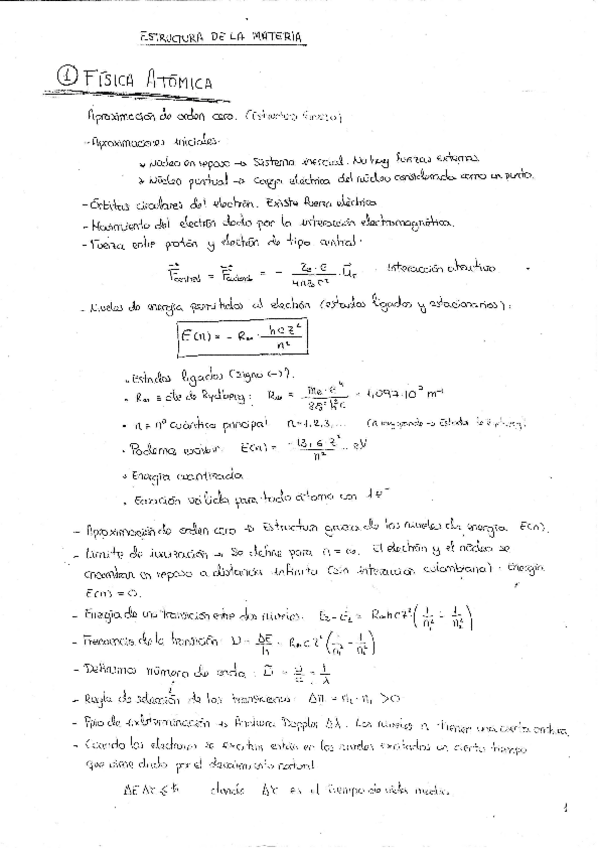 ESTRUCTURA DE LA MATERIA
① FÍSICA ATÓMICA
Aproximación de orden cero. (Estructura Gruesa)
- Aproximaciones iniciales.
Núcleo en reposo → Sistema inercial. No hay fuerzas externas.
Núcleo puntual → Carga eléctrica del núcleo considerada como un punto.
- Órbitas circulares del electrón. Existe fuerza eléctrica
- Movimiento del electrón dado por la interacción electromagnética.
- Fuerza entre protón y electrón de tipo central.
Interacción atractiva
- Niveles de energía permitidos al electrón (estados ligados y estacionarios):
E(n) = - R∞ · hcZ² / n²
• Estados ligados (signo (-)).
• R∞ ≡ cte de Rydberg: R∞ = = 1,097·10⁷ m⁻¹
• n ≡ nº cuántico principal n=1,2,3,...
• Podemos escribir: E(n) = -13,6 Z² / n² eV
• Energía cuantizada
• Ecuación válida para todo átomo con 1e⁻
- Aproximación de orden cero → Estructura gruesa de los niveles de energía E(n).
- Límite de ionización → Se define para n = ∞. El electrón y el núcleo se
encuentran en reposo a distancia infinita (sin interacción culombiana). Energía
E(n) = 0.
- Energía de una transición entre dos niveles.
- Frecuencia de la transición ν = ΔE / h = R∞ c Z²
- Definimos número de onda:
- Regla de selección de las transiciones: Δn = > 0
- Anchura Doppler Δλ. Los niveles n tienen una cierta anchura.
- Cuando los electrones se excitan están en los niveles excitados un cierto tiempo
que viene dado por el decaimiento natural
donde Δτ es el tiempo de vida media.
1